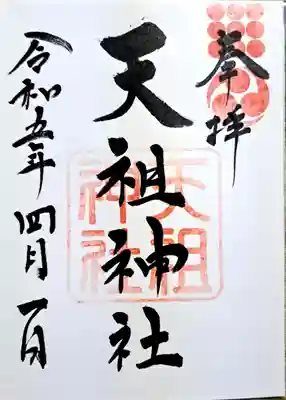 奉拝
天祖神社
天祖
神社
令和五年 四月 一日